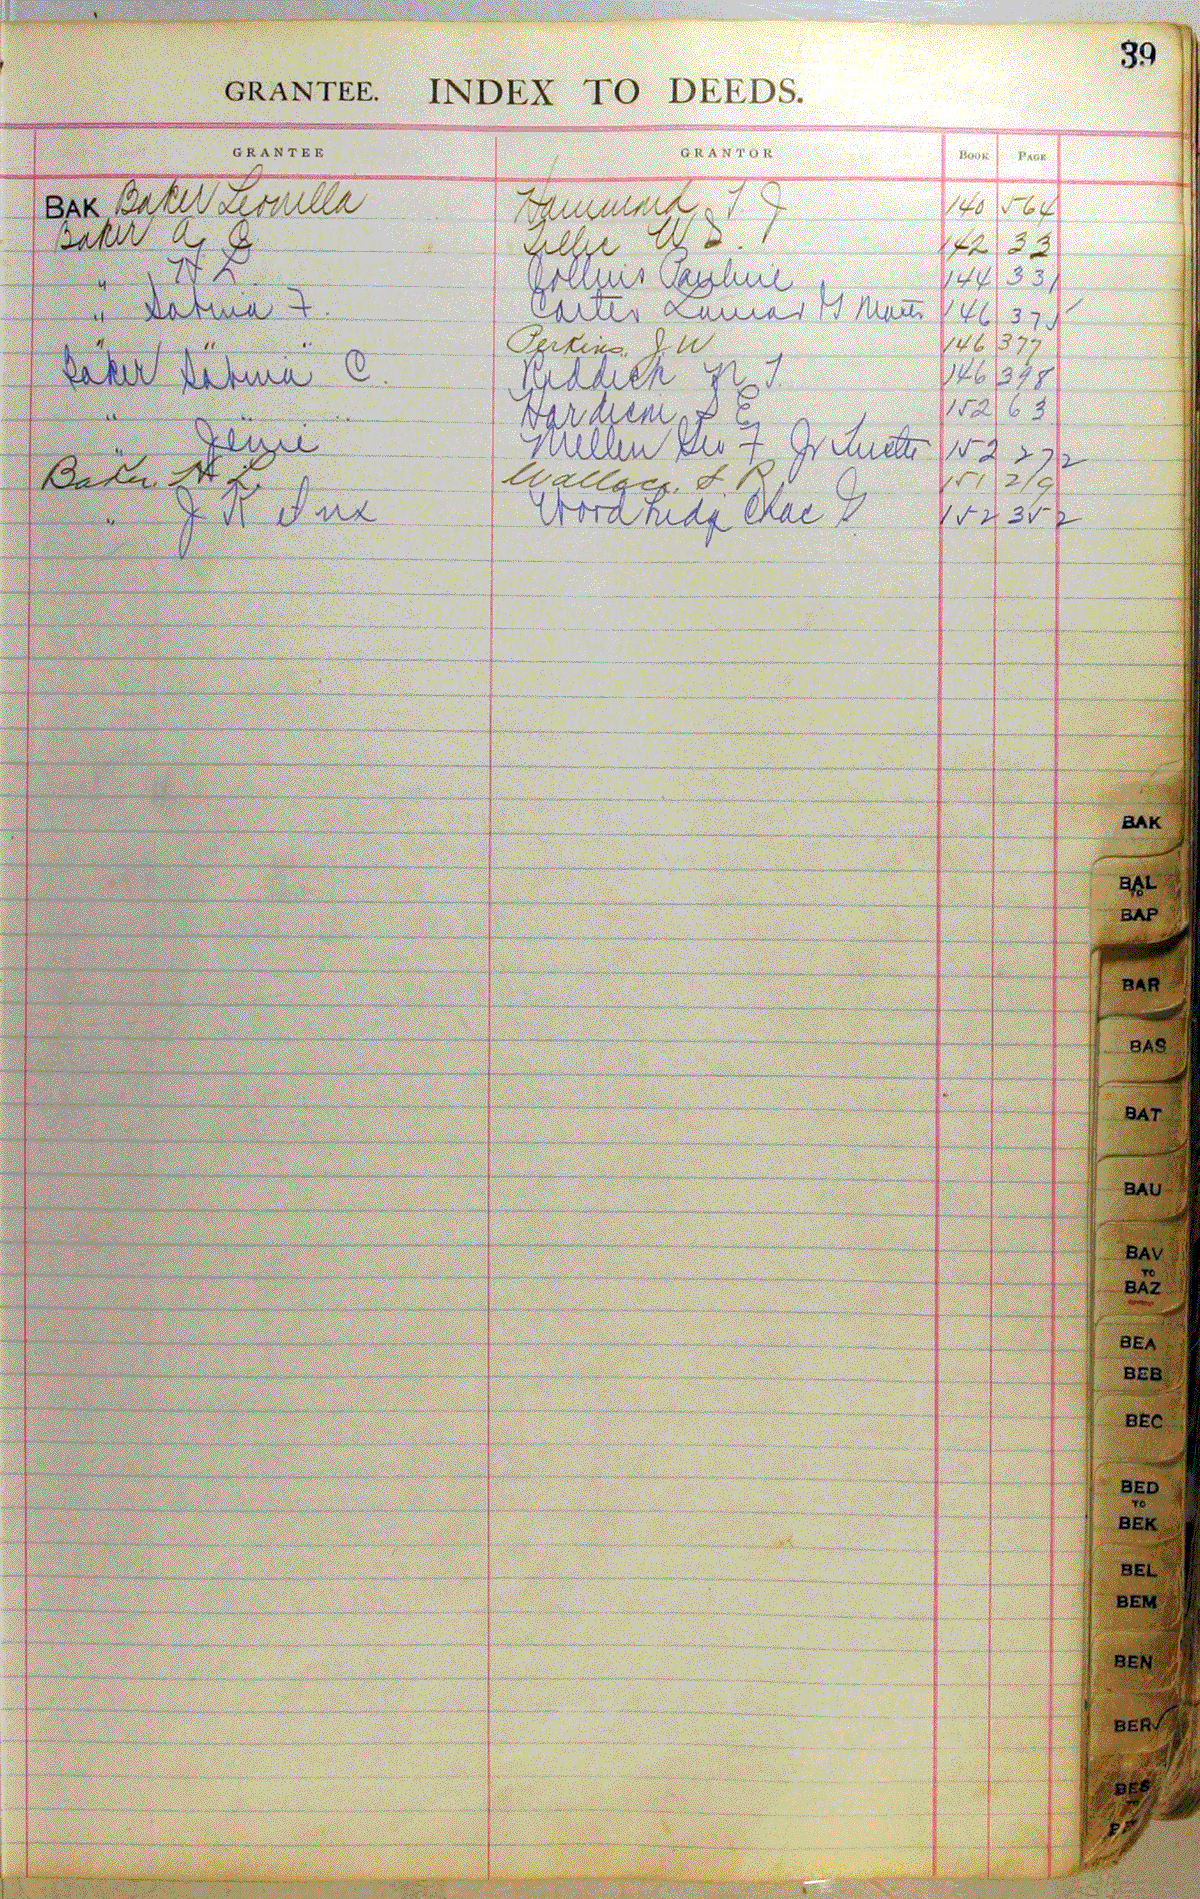 39
GRANTEE. INDEX TO DEEDS.
GRANTEE GRANTOR BOOK PAGE
BAK Baker Leonilla Hammond T J 140 564
Baker A C W S. 142 33
" H L. Collins Pauline 144 331
" Sabina F. Carter Lamar G 146 375
" " " Perkins, J W 146 377
Baker Sabina C. Reddick N T. 146 398
" " .. S E 152 63
" Jennie Mellen Geo F Jr Trustee 152 272
Baker H L. Wallace, S R 151 219
" J K Trux Woodridg Chas G 152 352
BAK
BAL
TO
BAP
BAR
BAS
BAT
BAU
BAV
TO
BAZ
BEA
BEB
BEC
BED
TO
BEK
BEL
BEM
BEN
BER
BES